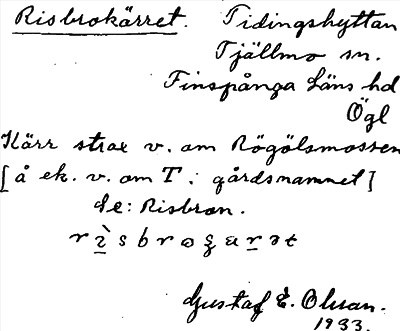 Risbrokärret. Tidingshyttan
Tjällmo sn.
Finspånga läns hd
Ögl
Kärr strax v. om Rögölsmossen
[å ek. v. om T. gårdsnamnet]
Se: Risbron.
Gustaf E. Olsson.
1933.